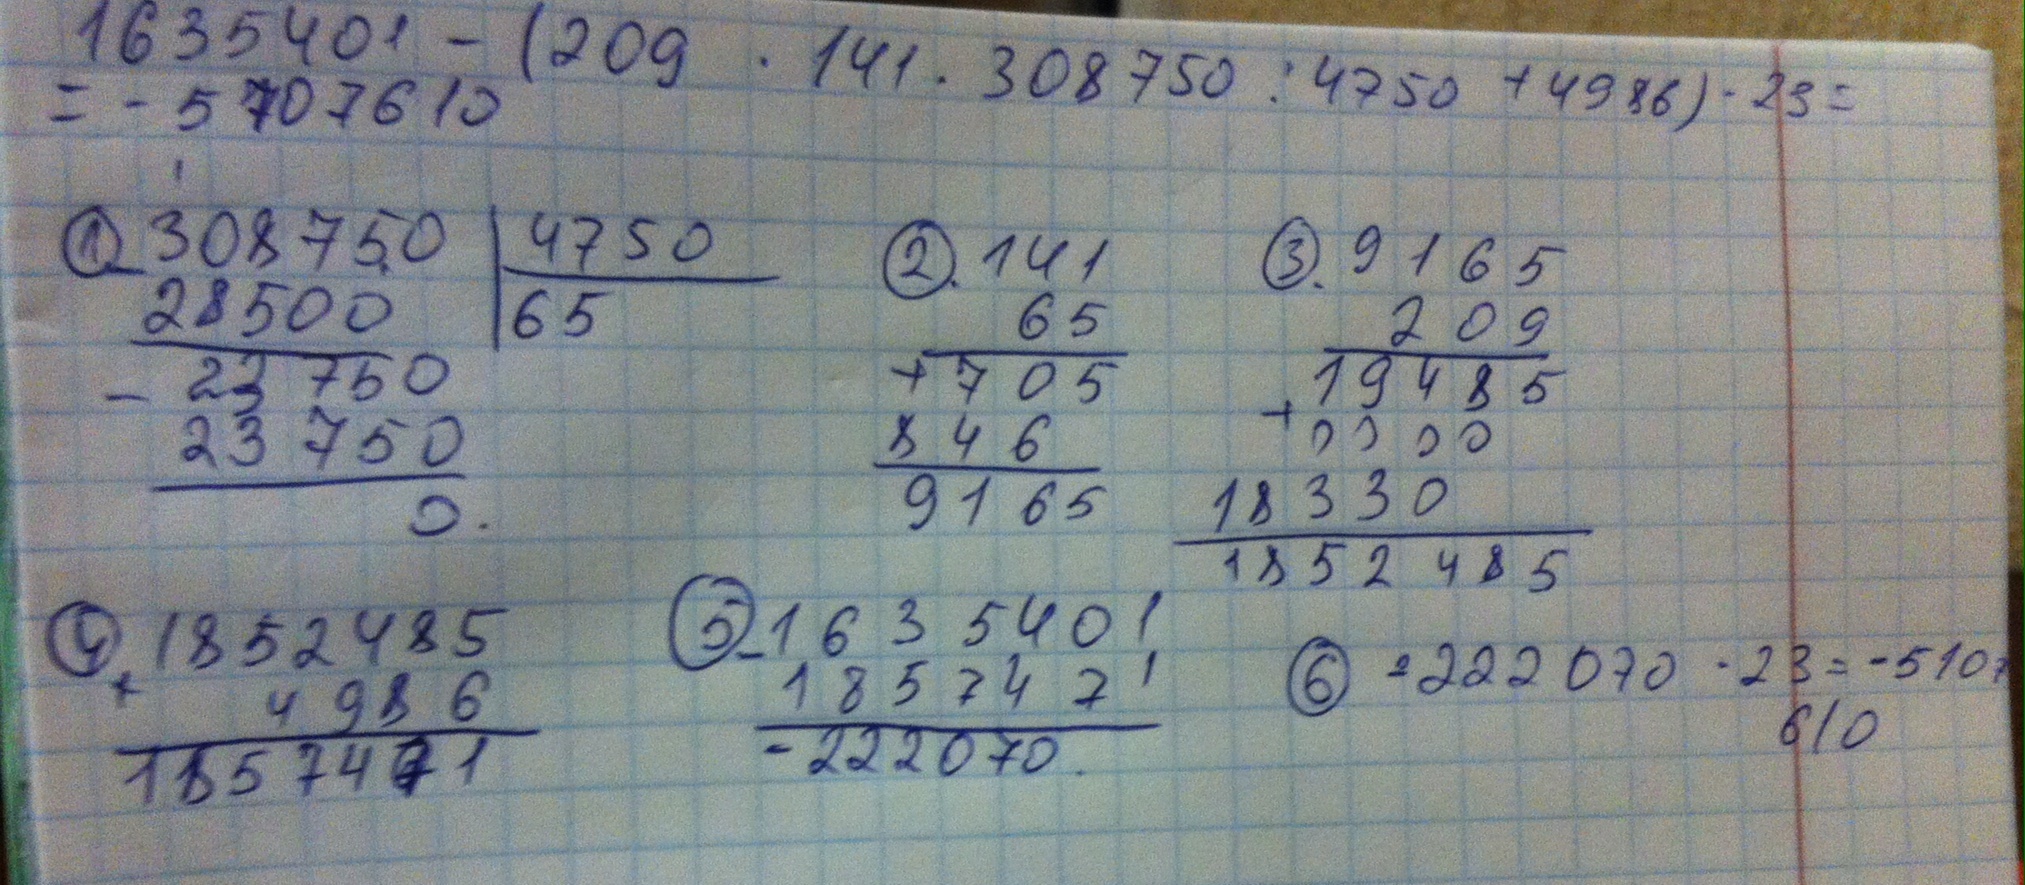 1635401 - (209 · 141 · 308750 : 4750 + 4986) · 23 =
= - 5707610
① 308750 | 4750
28500 | 65
- 23750
23750
0.
②. 141
65
+ 705
846
9165
③. 9165
209
19485
+ 0000
18330
1852485
④ 1852485
+ 4986
1857471
⑤ - 1635401
1857471
- 222070.
⑥ -222070 · 23 = -5107
610